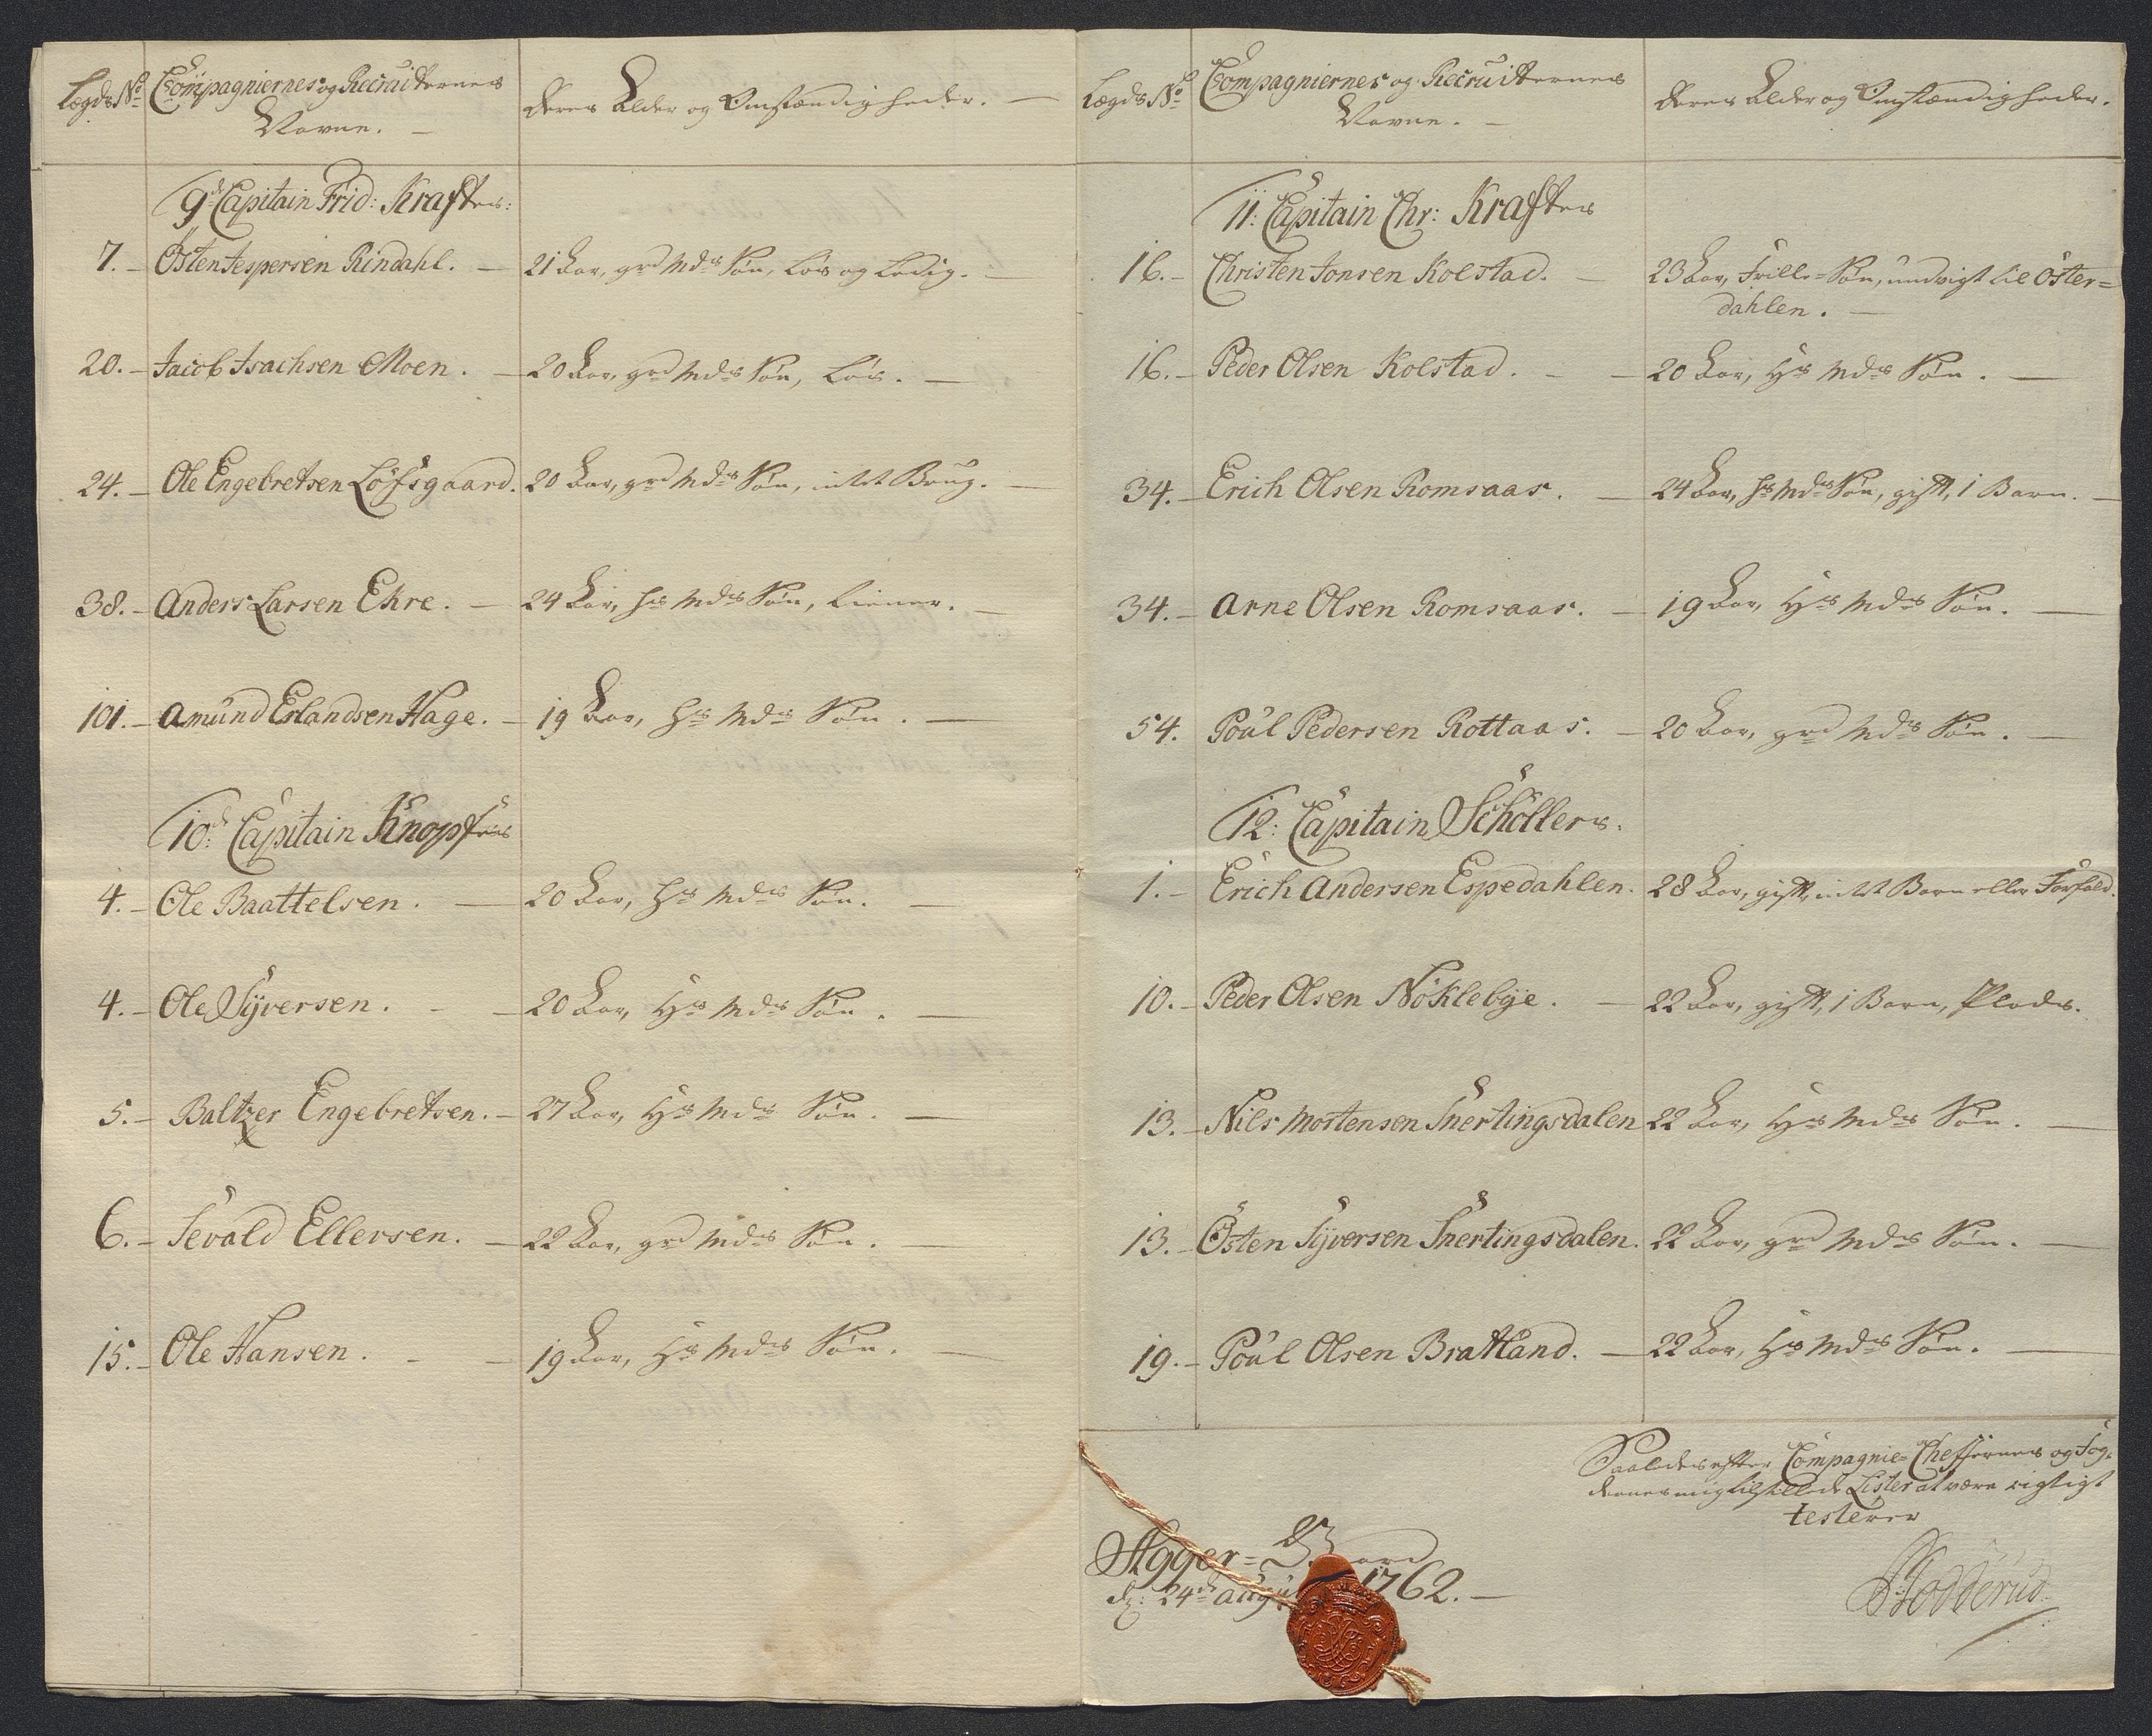 Lægds No Compagniernes og Recruternes
Navne. —
deres Alder og Omstændigheder. —
9de Capitain Frid: Kraftes:
7. — Östen Jespersen Rindahl. — 21 Aar, grd Mds Søn, løs og ledig. —
20. — Jacob Isachsen Moen. — 20 Aar, grd Mds Søn, løs. —
24. — Ole Engebretsen Löfsgaard. 20 Aar, grd Mds Søn, intet Brug. —
38. — Anders Larsen Ehre. — 24 Aar, hs Mds Søn, tiener. —
101. — Amund Erlandsen Hage. — 19 Aar, hs Mds Søn. —
10de Capitain Knopfes
4. — Ole Baattelsen. — 20 Aar, hs Mds Søn. —
4. — Ole Syversen. — 20 Aar, Hs Mds Søn. —
5. — Baltzer Engebretsen. — 27 Aar, Hs Mds Søn. —
6. — Sevald Ellersen. — 22 Aar, grd Mds Søn. —
15. — Ole Hansen. — 19 Aar, Hs Mds Søn. —
Lægds No Compagniernes og Recruiternes
Navne. —
deres Alder og Omstændigheder.
11: Capitain Chr: Kraftes
16. — Christen Jonsen Kolstad. — 23 Aar, Frille=Søn, undvigt til Öster=
dahlen. —
16. — Peder Olsen Kolstad. — 20 Aar, Hs Mds Søn. —
34. — Erich Olsen Romsaas. — 24 Aar, hs Mds Søn, gift, 1 Barn. —
34. — Arne Olsen Romsaas. — 19 Aar, Hs Mds Søn. —
54. Poul Pedersen Rottaas. — 20 Aar, grd Mds Søn. —
12: Capitain Schöllers.
1. — Erich Andersen Espedahlen. 28 Aar, gift, intet Barn eller Forfald.
10. — Peder Olsen Nöklebye. — 22 Aar, gift, 1 Barn, Plads.
13. — Nils Mortensen Snertingsdalen 22 Aar, Hs Mds Søn. —
13. — Östen Syversen Snertingsdalen. 22 Aar, grd Mds Søn. —
19. — Poul Olsen Brattland. — 22 Aar, Hs Mds Søn. —
Saaledes efter Compagnie=Cheffernes og Fog=
dernes mig tilstillede Lister at være rigtigt
testerer
Agger=
d: 24de Aug 1762. —